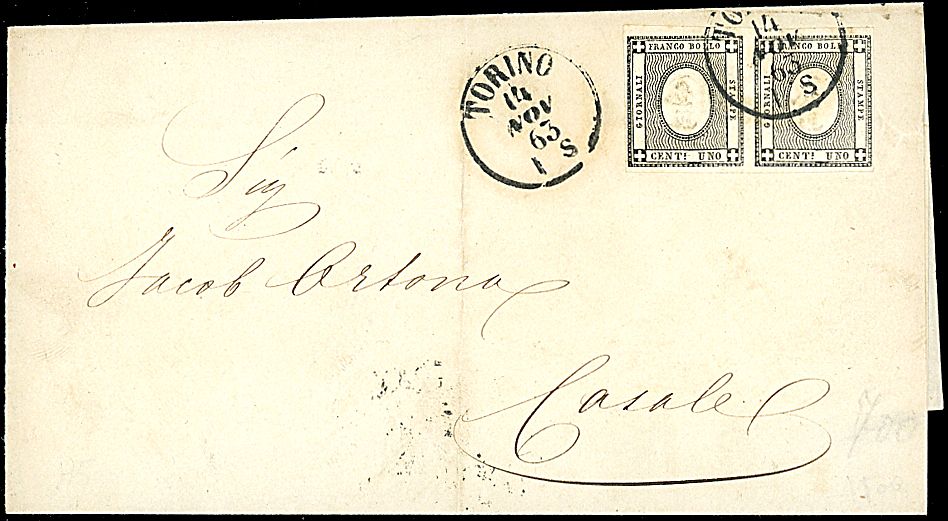 TORINO
14
NOV
63
1 S
FRANCO BOLLO
GIORNALI
STAMPE
CENT! UNO
TO
14
NOV
63
1 S
FRANCO BOL
GIORNALI
STAMPE
CENT! UNO
Sig
Jacob Ortona
Casale
700